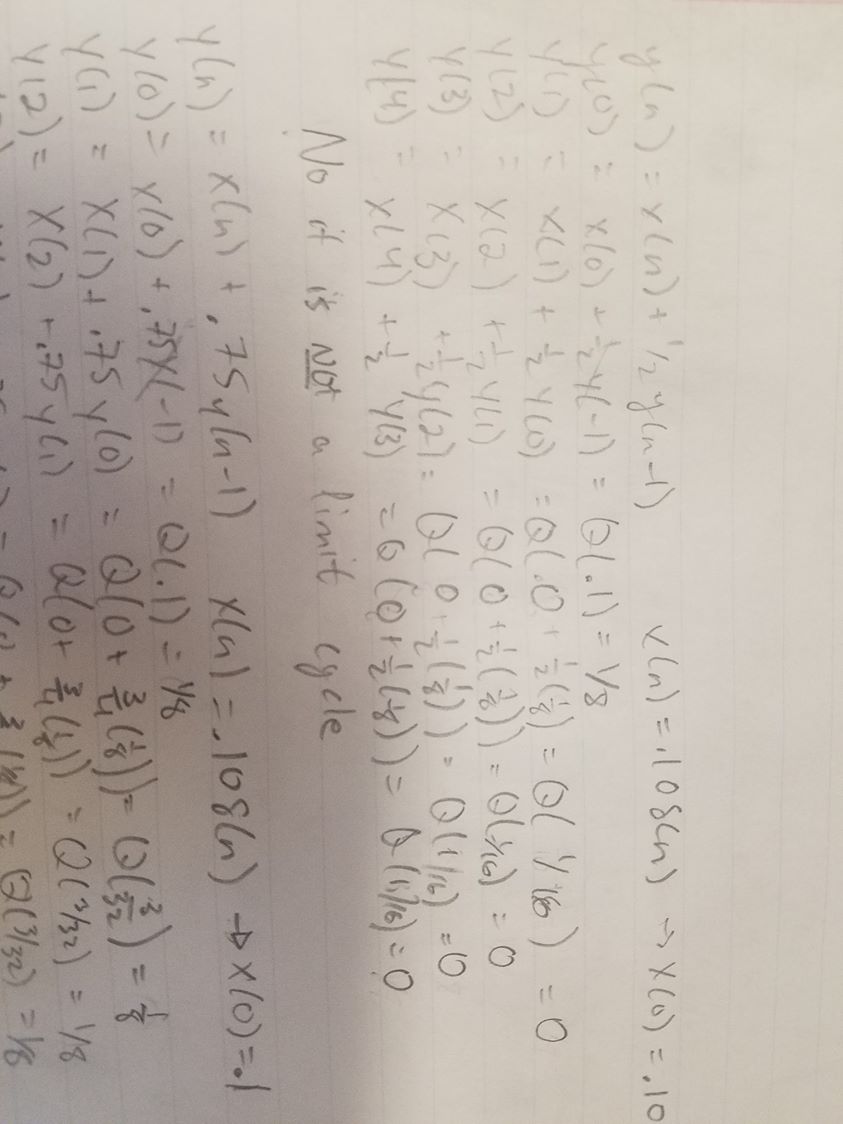 y(n) = x(n) + 1/2 y(n-1)   x(n) = .10δ(n) → x(0) = .10
y(0) = x(0) + 1/2 y(-1) = Q(.1) = 1/8
y(1) = x(1) + 1/2 y(0) = Q(.0 + 1/2(1/8) = Q(1/16) = 0
y(2) = x(2) + 1/2 y(1) = Q(0 + 1/2(1/8)) = Q(1/16) = 0
y(3) = x(3) + 1/2 y(2) = Q(0 + 1/2(1/8)) = Q(1/16) = 0
y(4) = x(4) + 1/2 y(3) = Q(0 + 1/2(1/8)) = Q(1/16) = 0
No it is Not a limit cycle
y(n) = x(n) + .75y(n-1)   x(n) = .10δ(n) → x(0) = .1
y(0) = x(0) + .75y(-1) = Q(.1) = 1/8
y(1) = x(1) + .75 y(0) = Q(0 + 3/4(1/8)) = Q(3/32) = 1/8
y(2) = x(2) + .75 y(1) = Q(0 + 3/4(1/8)) = Q(3/32) = 1/8
= Q(3/32) = 1/8